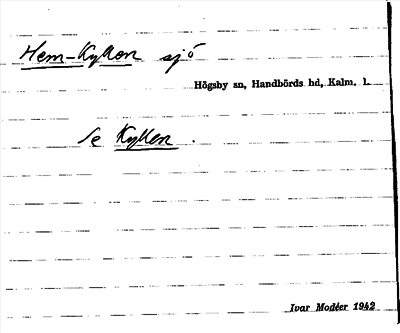 Hem-Kyllen sjö
Högsby sn, Handbörds hd, Kalm. l.
Se Kyllen.
Ivar Modéer 1942